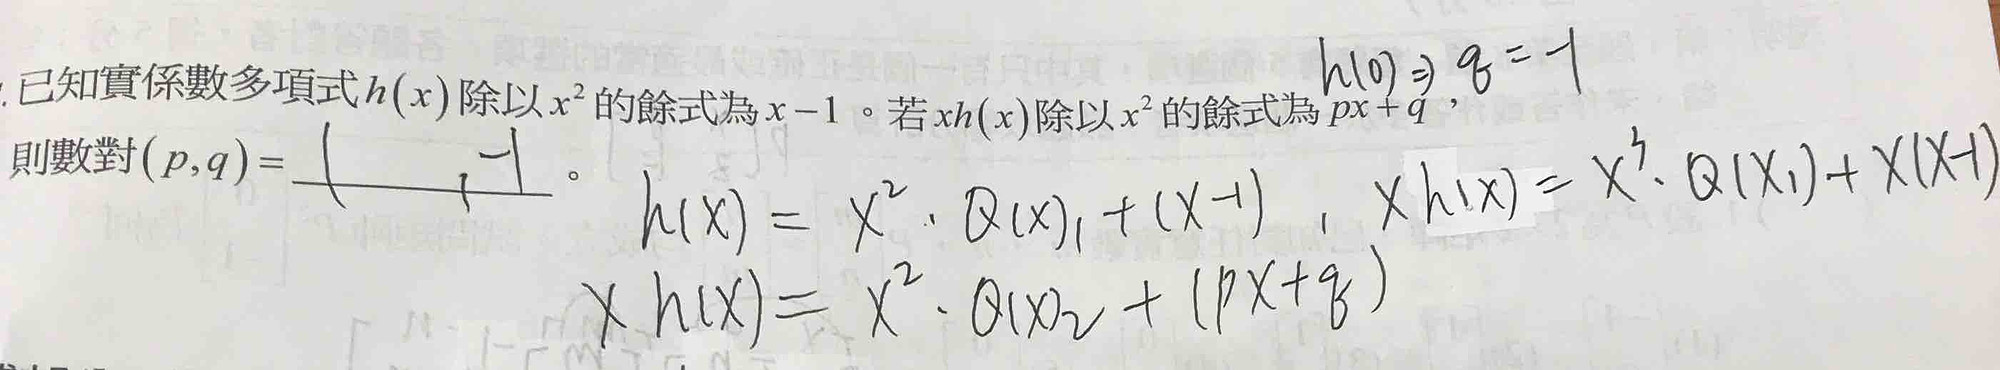 h(0) ⇒ q = -1
已知實係數多項式 h(x) 除以 x² 的餘式為 x − 1 。若 xh(x) 除以 x² 的餘式為 px + q ,
則數對 (p, q) = ( , -1 。
h(x) = x² · Q(x)₁ + (x-1) , x h(x) = x³ · Q(x₁) + x(x-1)
x h(x) = x² · Q(x)₂ + (px+q)